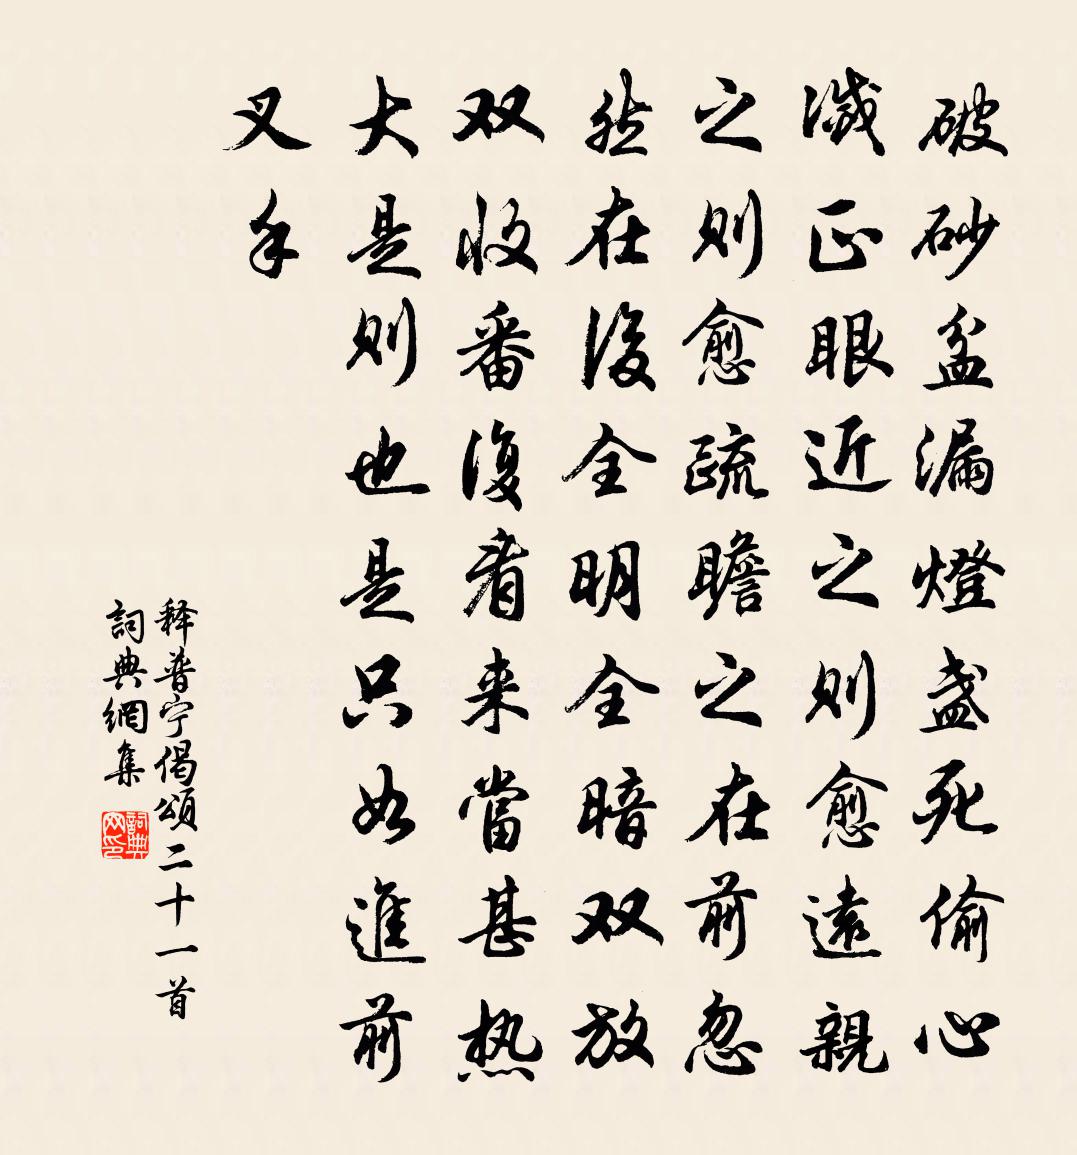 破砂盆漏燈盞死偷心
滅正眼近之則愈遠親
之則愈疏瞻之在前忽
然在後全明全暗双放
双收番復看来當甚热
大是則也是只如進前
叉手
释普宁偈頌二十一首
詞典網集
詞典网印